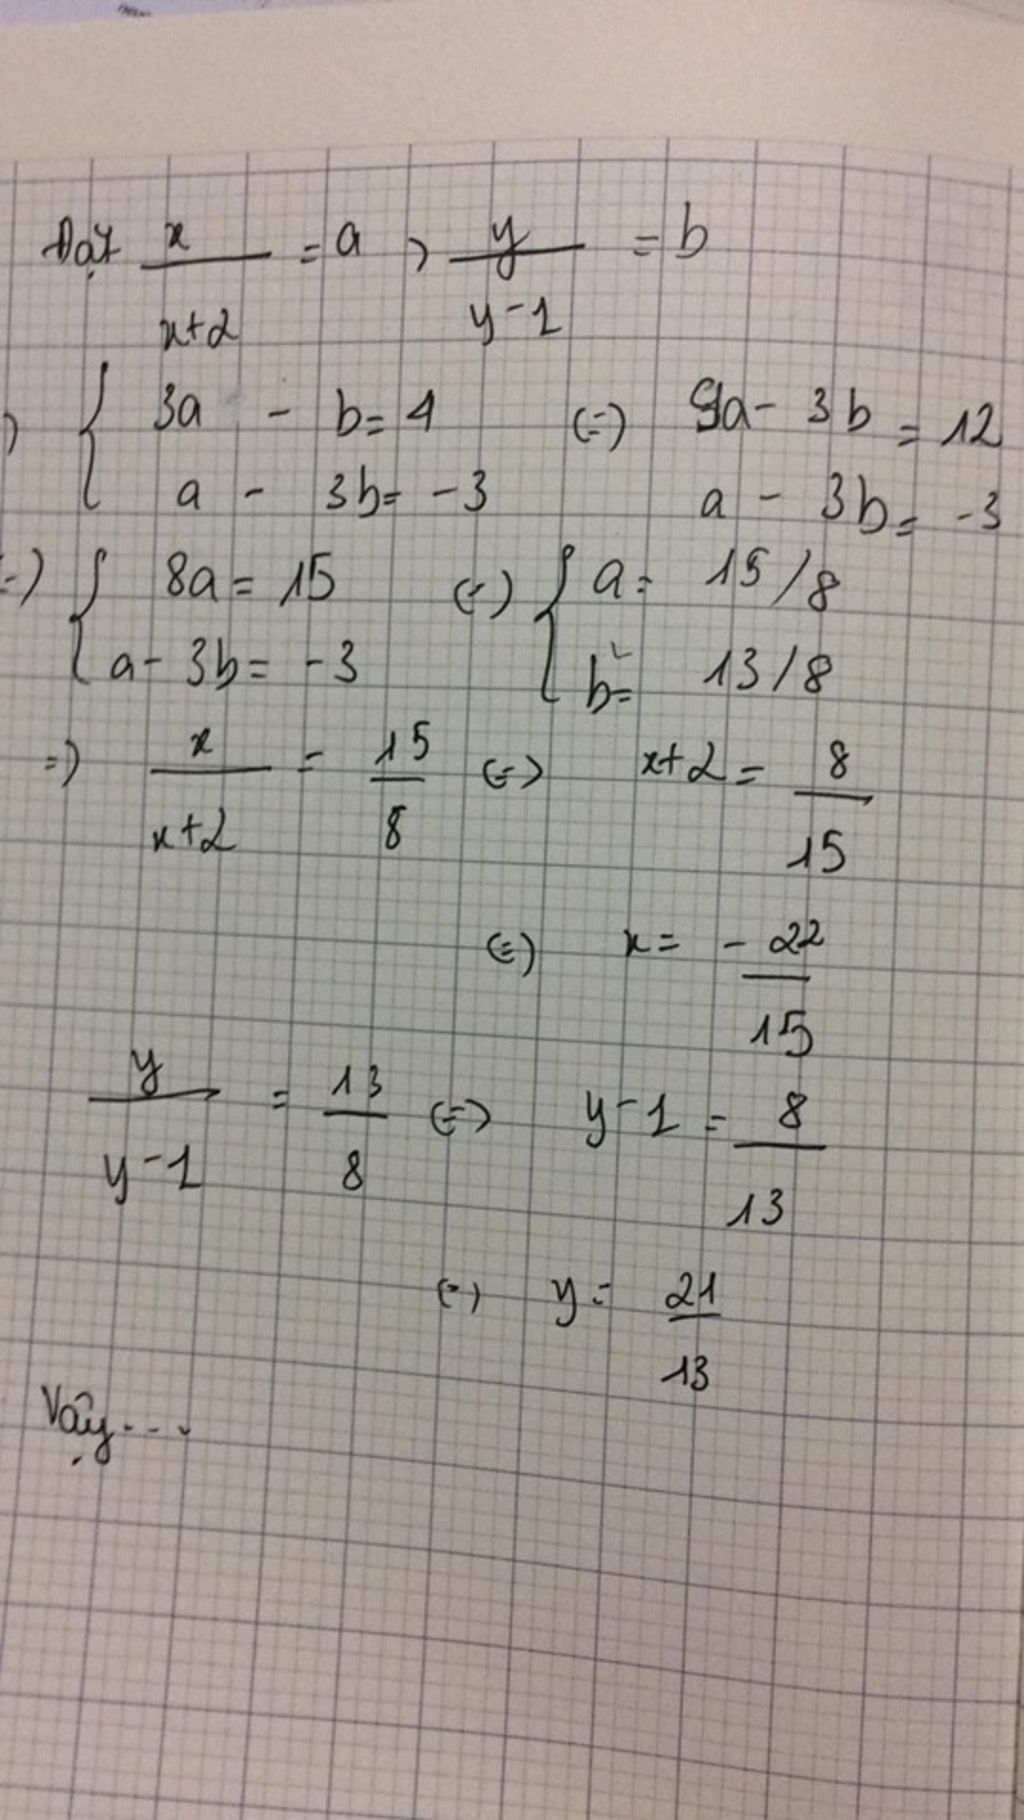 Đặt x/x+2 = a , y/y-1 = b
) { 3a - b = 4 (=) 9a - 3b = 12
a - 3b = -3 a - 3b = -3
=) { 8a = 15 (=) { a = 15/8
a - 3b = -3 b = 13/8
=) x/x+2 = 15/8 (=) x+2 = 8/15
(=) x = -22/15
y/y-1 = 13/8 (=) y-1 = 8/13
(=) y = 21/13
Vậy....